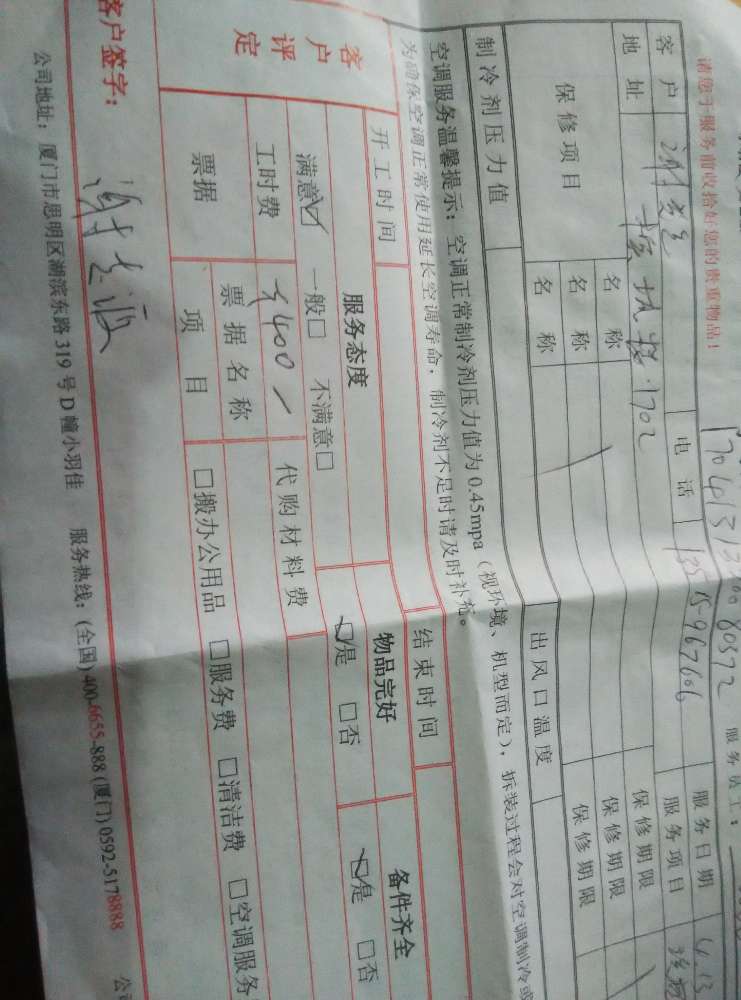 请您于服务前收拾好您的贵重物品！
80572 服务员工：
客户 谢先生 电话 服务日期 4.13
地址 1702 服务项目
保修项目 名称 保修期限
名称 保修期限
名称 保修期限
制冷剂压力值 出风口温度
空调服务温馨提示：空调正常制冷剂压力值为0.45mpa（视环境、机型而定），拆装过程会对空调制冷或
为确保空调正常使用延长空调寿命，制冷剂不足时请及时补充。
开工时间 结束时间
客户评定 服务态度 物品完好 备件齐全
满意☑ 一般□ 不满意□ ☑是 □否 ☑是 □否
工时费 400 代购材料费
票据 票据名称
项目 □搬办公用品 □服务费 □清洁费 □空调服务
客户签字：
公司地址：厦门市思明区湖滨东路319号D幢小羽佳 服务热线：(全国)400-6655-888(厦门)0592-5178888 公